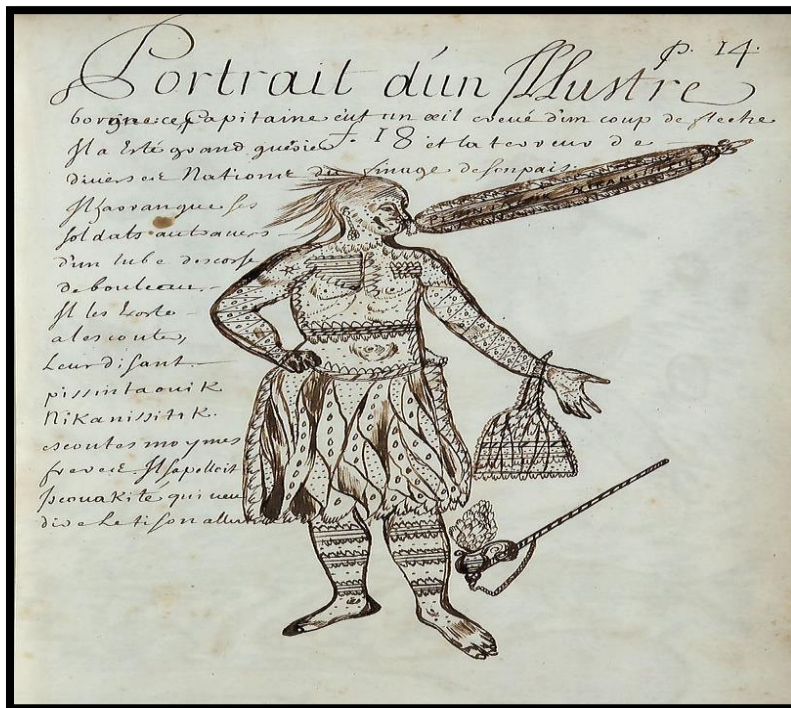 P. 14.
Portrait d'un Illustre
borgne ce Capitaine eut un œil crevé d'un coup de fleche
f. 18
Il a Esté grand guérier et la terreur de
diverses Nations du de son pais.
Il harangue ses
soldats autravers
d'un tube d'escorse
de bouleau.
Il les Exorte
a lescouter,
Leur disant
pissintaouik
Nikanissitik.
escoutes moy mes
freres. Il sapelloit
Iscouakité qui veut
dire Le tison allumé